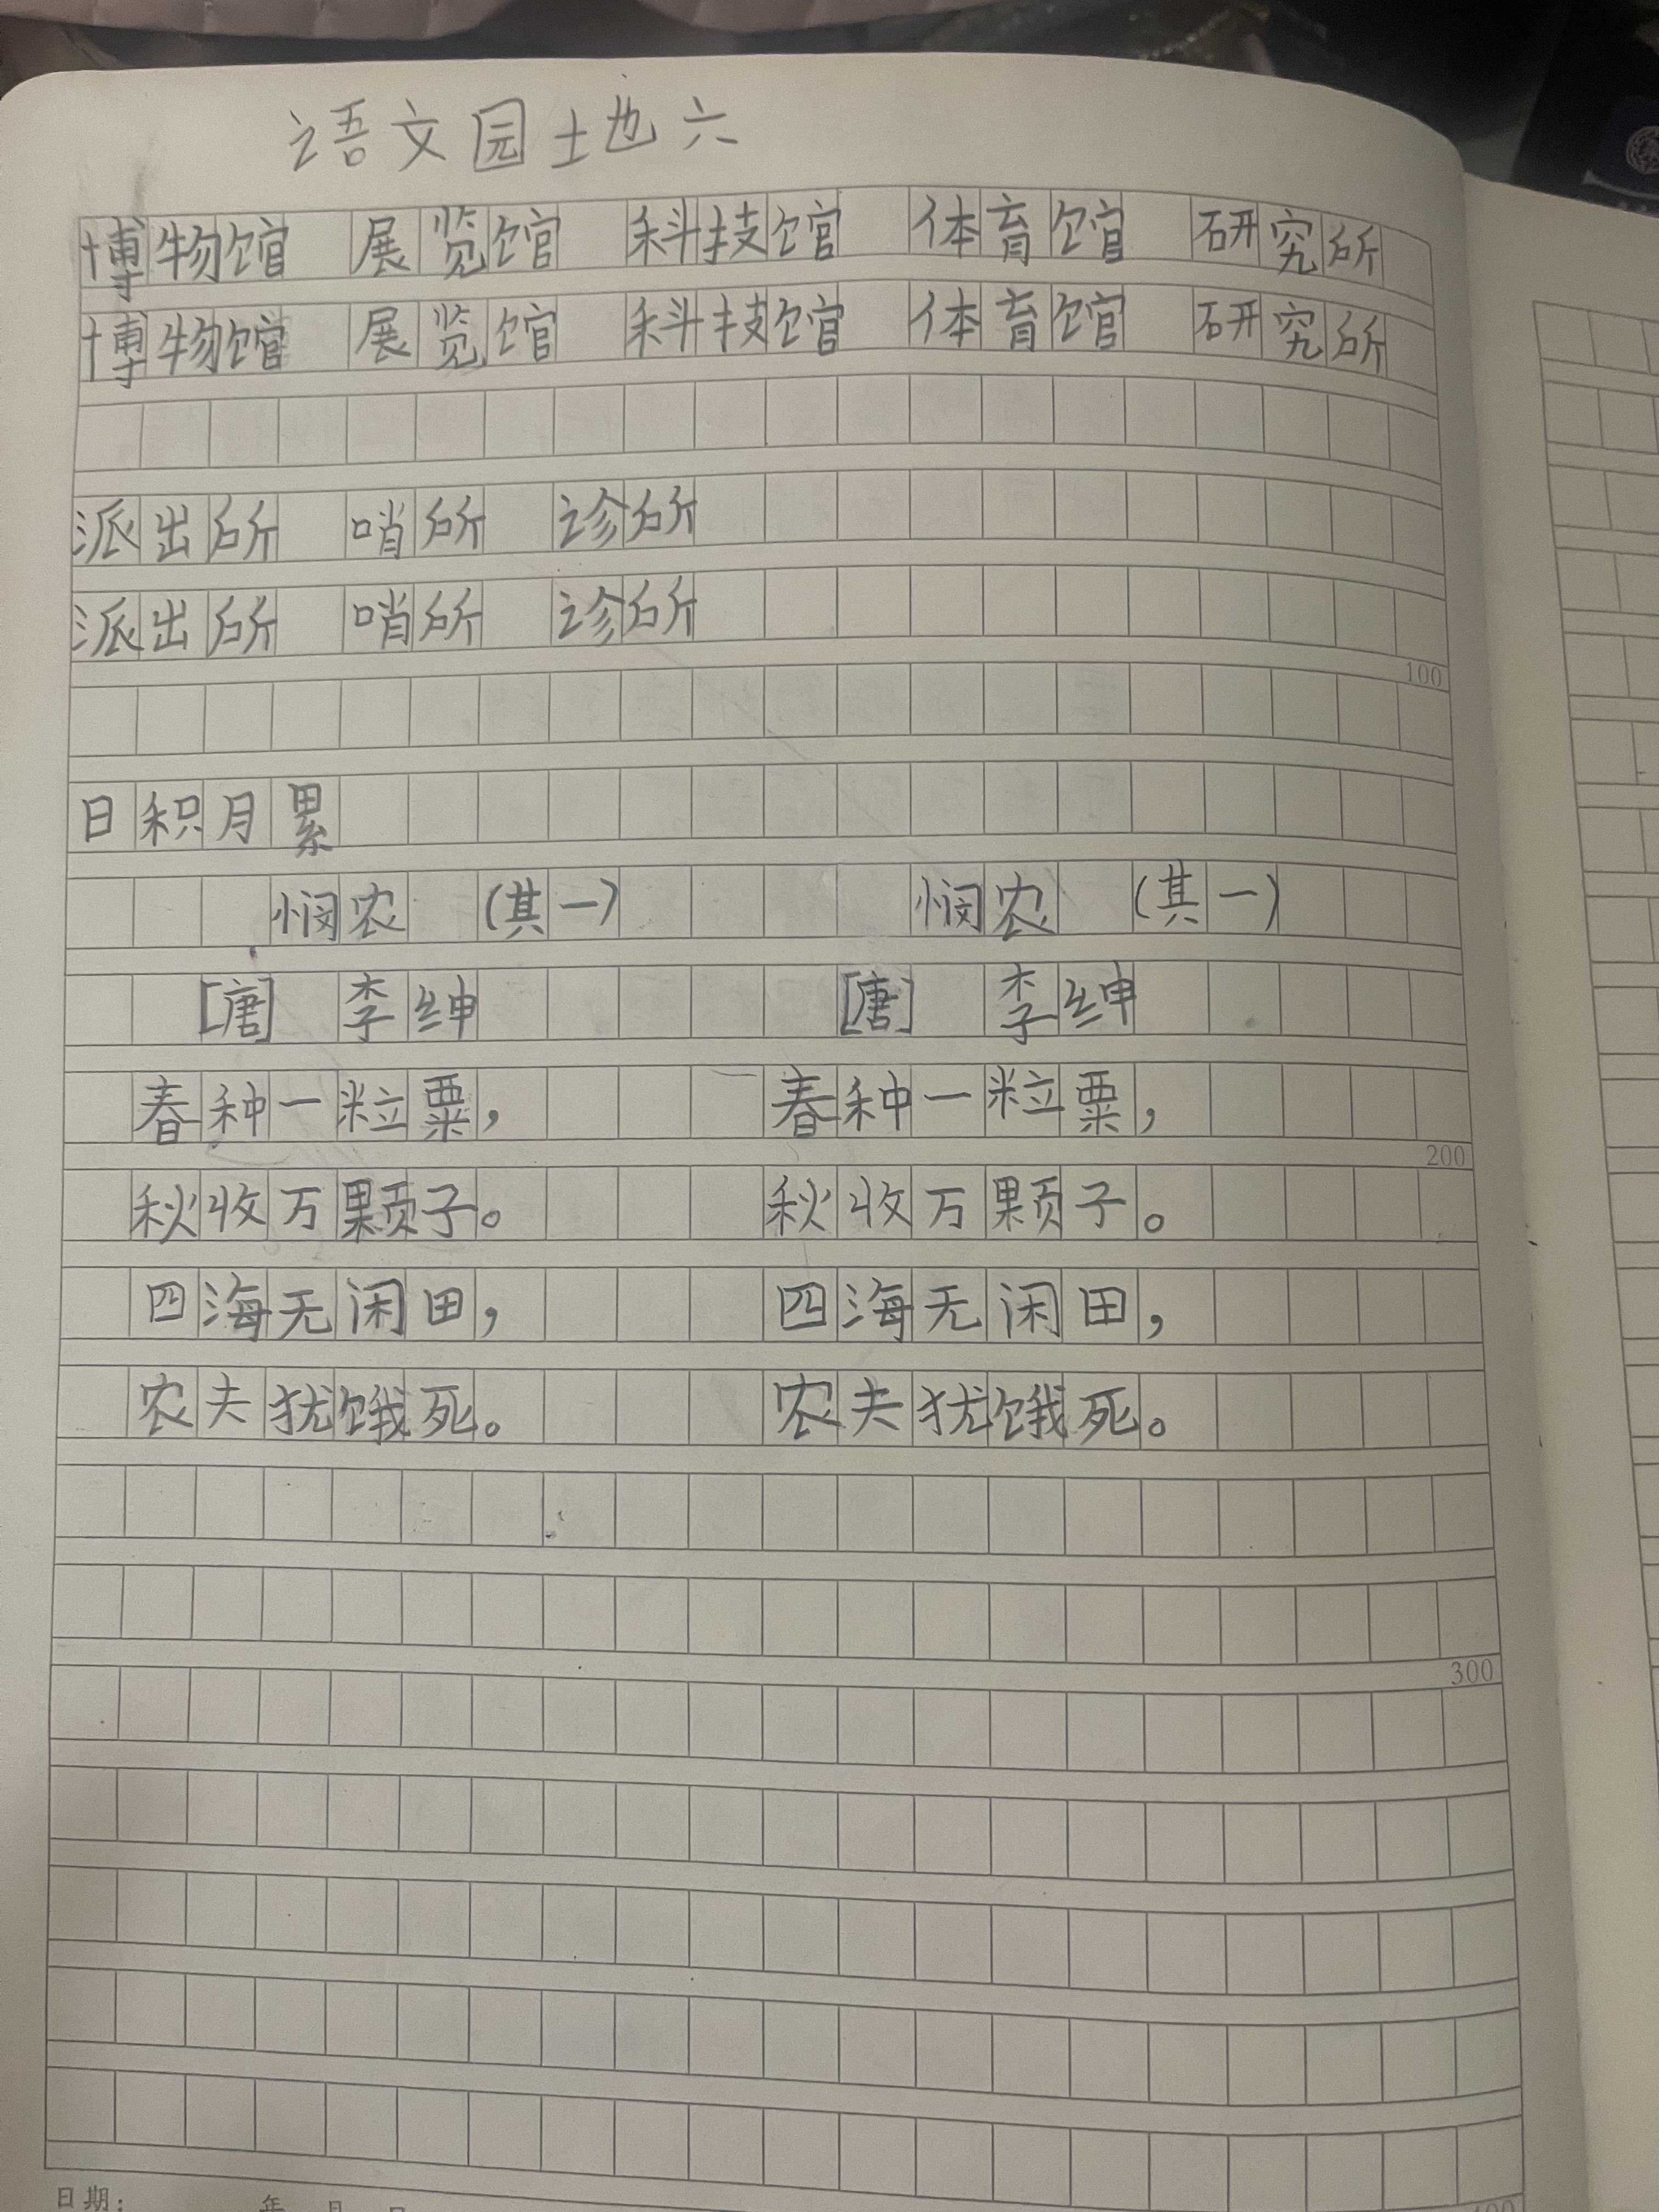 语文园地六
博物馆 展览馆 科技馆 体育馆 研究所
博物馆 展览馆 科技馆 体育馆 研究所
派出所 哨所 诊所
派出所 哨所 诊所
100
日积月累
悯农 (其一) 悯农 (其一)
[唐] 李绅 [唐] 李绅
春种一粒粟, 春种一粒粟,
200
秋收万颗子。 秋收万颗子。
四海无闲田, 四海无闲田,
农夫犹饿死。 农夫犹饿死。
300
日期: 年 月 日
400